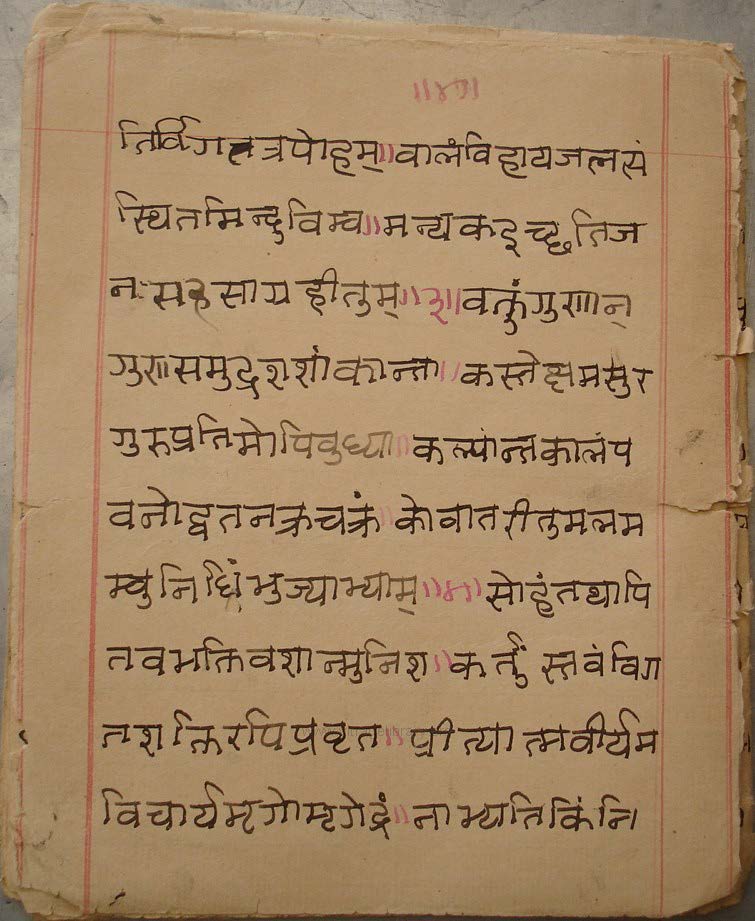 ॥४१॥
तिर्विगतत्रपोहम्॥वालंविहायजलसं
स्थितमिन्दुविम्व॥मन्यकइच्छतिज
नःसहसाग्रहीतुम्॥३॥वक्तुंगुणान्
गुणसमुद्रशशांकान्ता॥कस्तेक्षमसुर
गुरुप्रतिमोपिवुध्या॥कल्पांन्तकालंप
वनोद्वतनक्रचक्रं॥कोवातरीतुमलम
म्वुनिधिंभुज्याभ्याम्॥४॥सोहंतथापि
तवभक्तिवशान्मुनिश॥कर्तुंस्तवंविग
तशक्तिरपिप्रवृत॥प्रीत्यात्मवीर्यम
विचार्यमृगोमृगेद्रं॥नाभ्यतिकिंनि